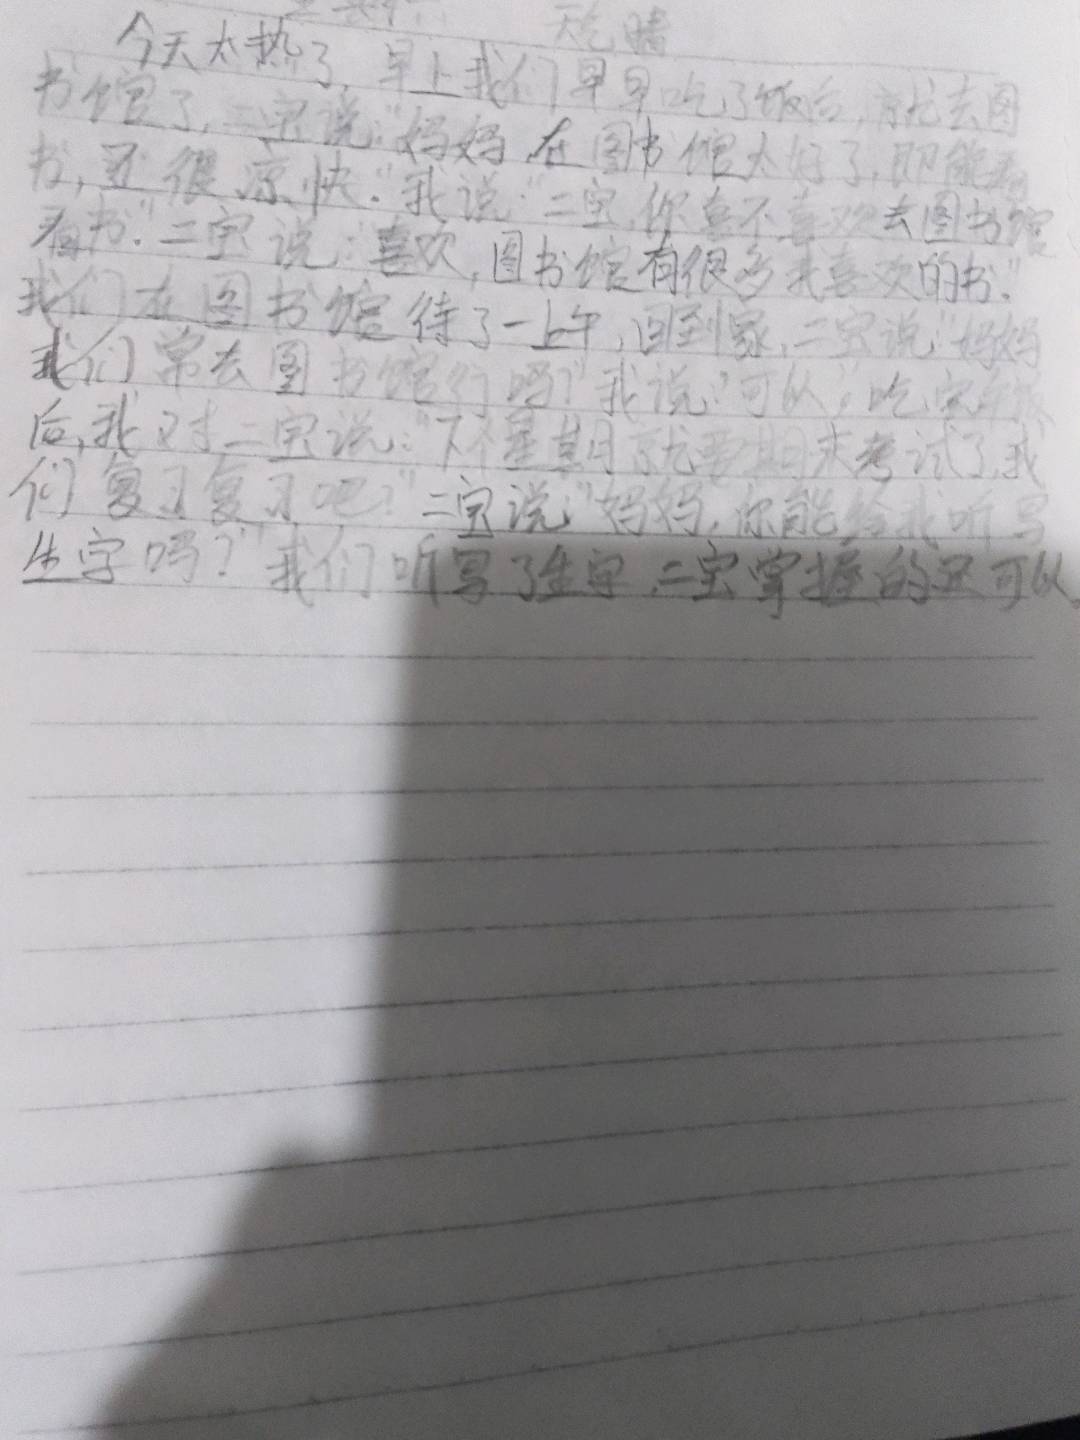 天气晴
今天太热了,早上我们早早吃了饭后,就去图
书馆了,二宝说:"妈妈在图书馆太好了,即能看
书,还很凉快."我说:"二宝你喜不喜欢去图书馆
看书."二宝说:"喜欢,图书馆有很多我喜欢的书."
我们在图书馆待了一上午,回到家,二宝说:"妈妈
我们常去图书馆行吗?"我说:"可以,"吃完午饭
后,我对二宝说:"下个星期就要期末考试了,我
们复习复习吧?"二宝说:"妈妈,你能给我听写
生字吗?"我们听写了生字,二宝掌握的还可以.